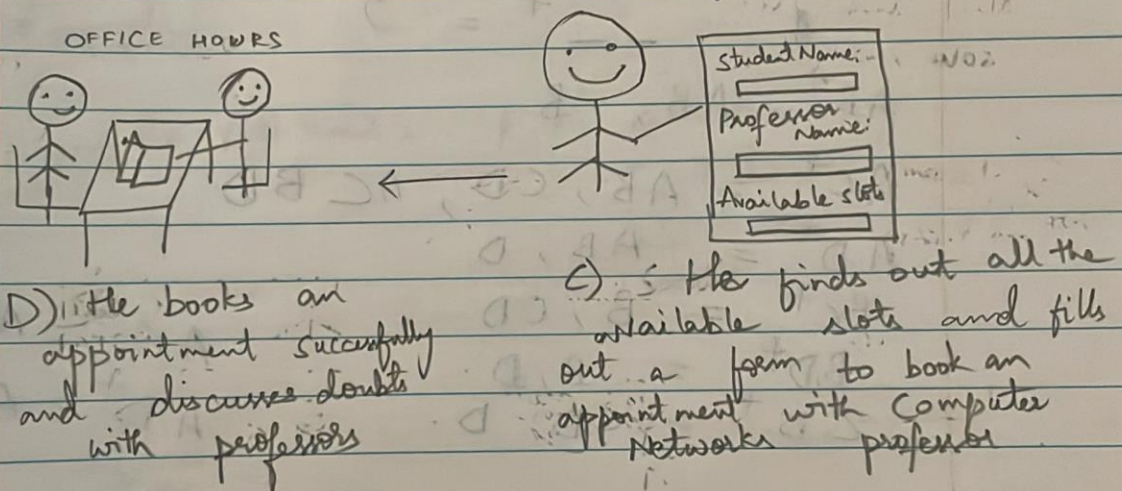 OFFICE HOURS
Student Name:
Professor
Name:
Available slots
D) He books an
appointment successfully
and discusses doubts
with professors
C) : He finds out all the
available slots and fills
out a form to book an
appointment with Computer
Networks professor